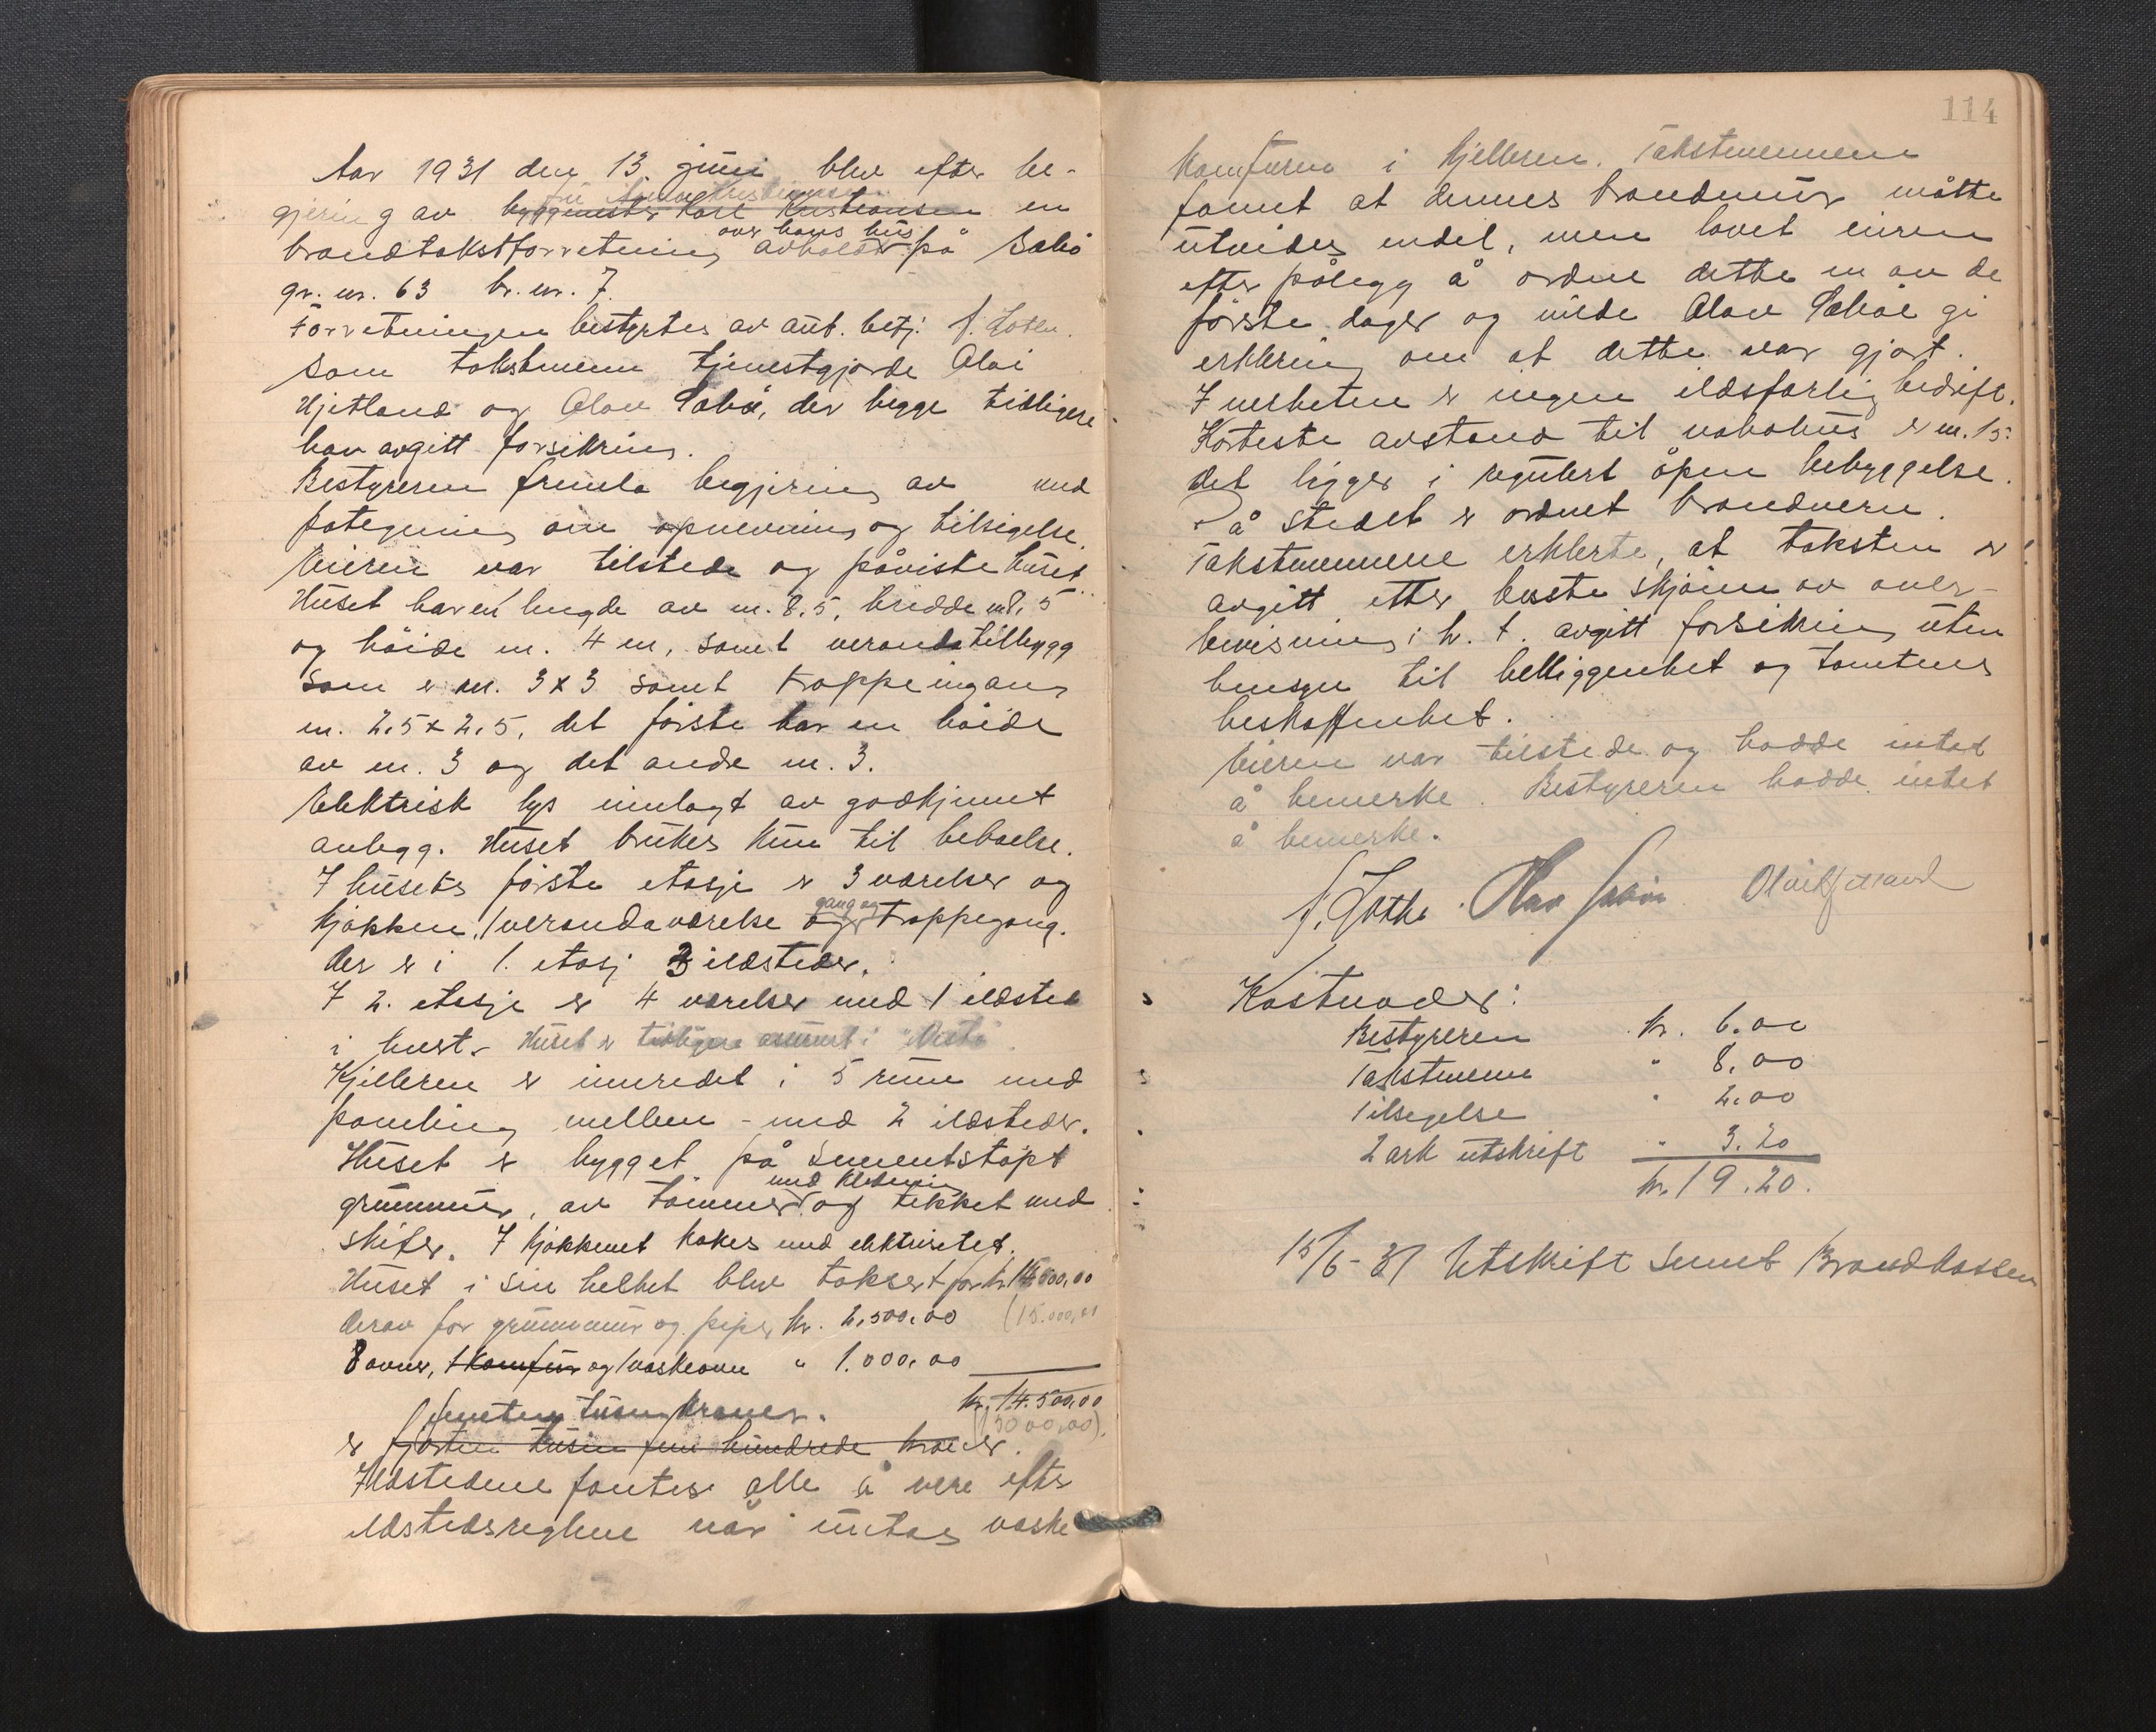 Aar 1931 den 13. juni blev efter be-
fru Anna Kristiansen
gjering av byggmester Karl Kristiansen en
over hans hus
brandtakstforretning avholdt på Sæbö
gr. nr. 63 br. nr. 7.
Forretningen bestyrtes av aut. betj. J. Lothe.
Som takstmenn tjenestgjorde Olai
Hjetland og Olav Sæbö, der begge tidligere
har avgitt forsikring.
Bestyreren fremla begjering av med
påtegning om opnevning og tilsigelse.
Eieren var tilstede og påviste huset.
Huset har en lengde av m. 8,5, bredde m 8,5
og höide m. 4 m, samt verandatilbygg
som er m. 3 x 3 samt trappeingang
m. 2,5 x 2,5, det förste har en höide
av m. 3 og det andre m. 3.
Elektrisk lys innlagt av godkjennt
anlegg. Huset brukes kun til beboelse.
I husets förste etasje er 3 værelser og
gang og
kjökken, 1 verandaværelse og trappegang.
Der er i 1. etasj 3 ildsteder.
I 2. etasje er 4 værelser med 1 ildsted
i hvert. Huset er tidligere assurert i
Kjelleren er innredet i 5 rum med
paneling mellem - med 2 ildsteder.
Huset er bygget på sementstöpt
med kledning
grunnmur, av tömmer og tekket med
skifer. I kjökkenet kokes med elektrisitet.
Huset i sin helhet blev taksert for kr. 14500,00
Derav for grunnmur og piper kr. 2.500,00 (15.000,00
8 ovner, 1 komfur og 1 vaskeovn " 1.000,00
kr. 14.500,00
femten tusen kroner. (15000,00).
er fjorten tusen fem hundrede kroner.
Ildstedene fantes alle å være efter
ildstedsreglene når untas vaske
114
komfuren i kjelleren. Takstmennene
fannt at dennes brandmur måtte
utvides endel, men lovet eieren
efter pålegg å ordne dette en av de
förste dager og vilde Olav Sæböe gi
erklering om at dette var gjort.
I nerheten er ingen ildsfarlig bedrift.
Korteste avstand til nabohus er m. 15.
det ligger i regulert åpen bebyggelse.
På stedet er ordnet brandvern.
Takstmennene erklerte, at taksten er
avgitt etter beste skjönn og over-
bevisning i h. t. avgitt forsikring uten
hensyn til beliggenhet og tomtens
beskaffenhet.
Eieren var tilstede og hadde intet
å bemerke. Bestyreren hadde intet
å bemerke.
J. Lothe. Olav Sæböe Olai Hjetland
Kostnader:
Bestyreren kr. 6.00
Takstmenn " 8,00
Tilsigelse " 2,00
2 ark utskrift " 3.20
kr. 19.20.
15/6-31 Utskrift sennt Brandkassen